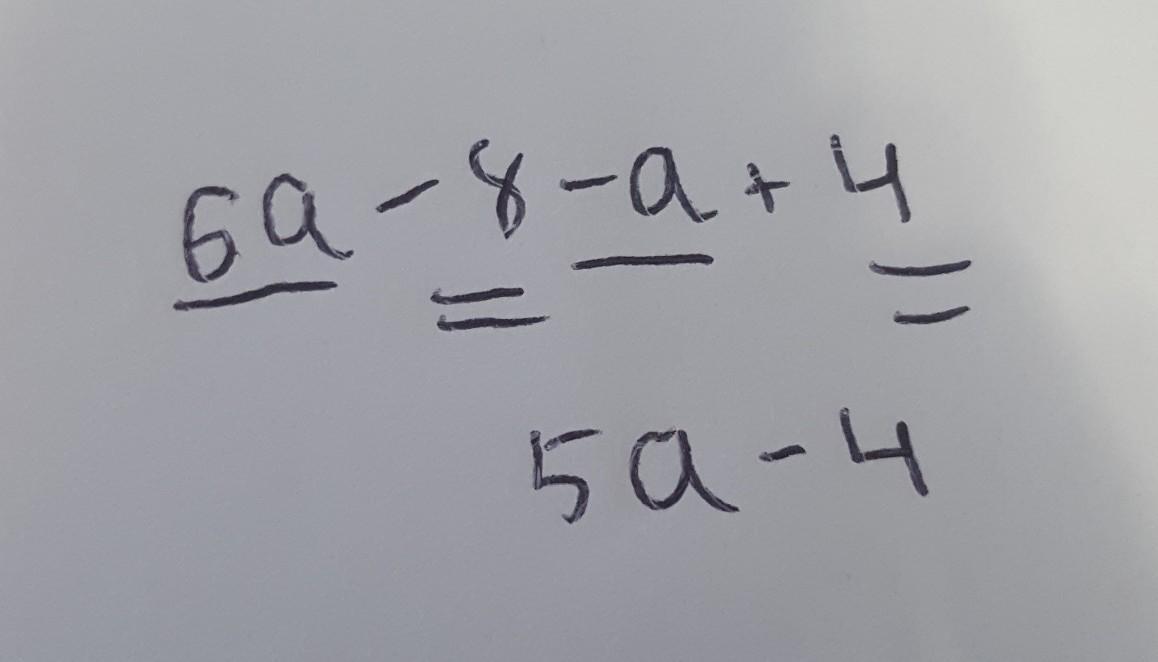 6a - 8 - a + 4
5a - 4